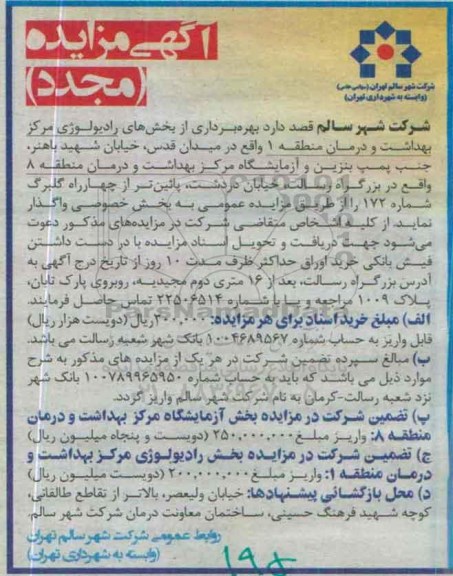 آگهی مزایده
(مجدد)
شرکت شهر سالم تهران (سهامی خاص)
(وابسته به شهرداری تهران)
شرکت شهر سالم قصد دارد بهره‌برداری از بخش‌های رادیولوژی مرکز
بهداشت و درمان منطقه ۱ واقع در میدان قدس، خیابان شهید باهنر،
جنب پمپ بنزین و آزمایشگاه مرکز بهداشت و درمان منطقه ۸
واقع در بزرگراه رسالت، خیابان دردشت، پائین‌تر از چهارراه گلبرگ
شماره ۱۷۲ را از طریق مزایده عمومی به بخش خصوصی واگذار
نماید. از کلیه اشخاص متقاضی شرکت در مزایده‌های مذکور دعوت
می‌شود جهت دریافت و تحویل اسناد مزایده با در دست داشتن
فیش بانکی خرید اوراق حداکثر ظرف مدت ۱۰ روز از تاریخ درج آگهی به
آدرس بزرگراه رسالت، بعد از ۱۶ متری دوم مجیدیه، روبروی پارک تابان،
پلاک ۱۰۰۹ مراجعه و یا با شماره ۲۲۵۰۶۵۱۴ تماس حاصل فرمایند.
الف) مبلغ خرید اسناد برای هر مزایده: ۲۰۰,۰۰۰ ریال (دویست هزار ریال)
قابل واریز به حساب شماره ۱۰۰۴۶۸۹۵۶۷ بانک شهر شعبه رسالت می باشد.
ب) مبالغ سپرده تضمین شرکت در هر یک از مزایده های مذکور به شرح
موارد ذیل می باشند که باید به حساب شماره ۱۰۰۷۸۹۹۶۵۹۵۰ بانک شهر
نزد شعبه رسالت-کرمان به نام شرکت شهر سالم واریز گردد.
پ) تضمین شرکت در مزایده بخش آزمایشگاه مرکز بهداشت و درمان
منطقه ۸: واریز مبلغ ۲۵۰,۰۰۰,۰۰۰ (دویست و پنجاه میلیون ریال)
ج) تضمین شرکت در مزایده بخش رادیولوژی مرکز بهداشت و
درمان منطقه ۱: واریز مبلغ ۲۰۰,۰۰۰,۰۰۰ (دویست میلیون ریال)
د) محل بازگشائی پیشنهادها: خیابان ولیعصر، بالاتر از تقاطع طالقانی،
کوچه شهید فرهنگ حسینی، ساختمان معاونت درمان شرکت شهر سالم.
روابط عمومی شرکت شهر سالم تهران
(وابسته به شهرداری تهران)